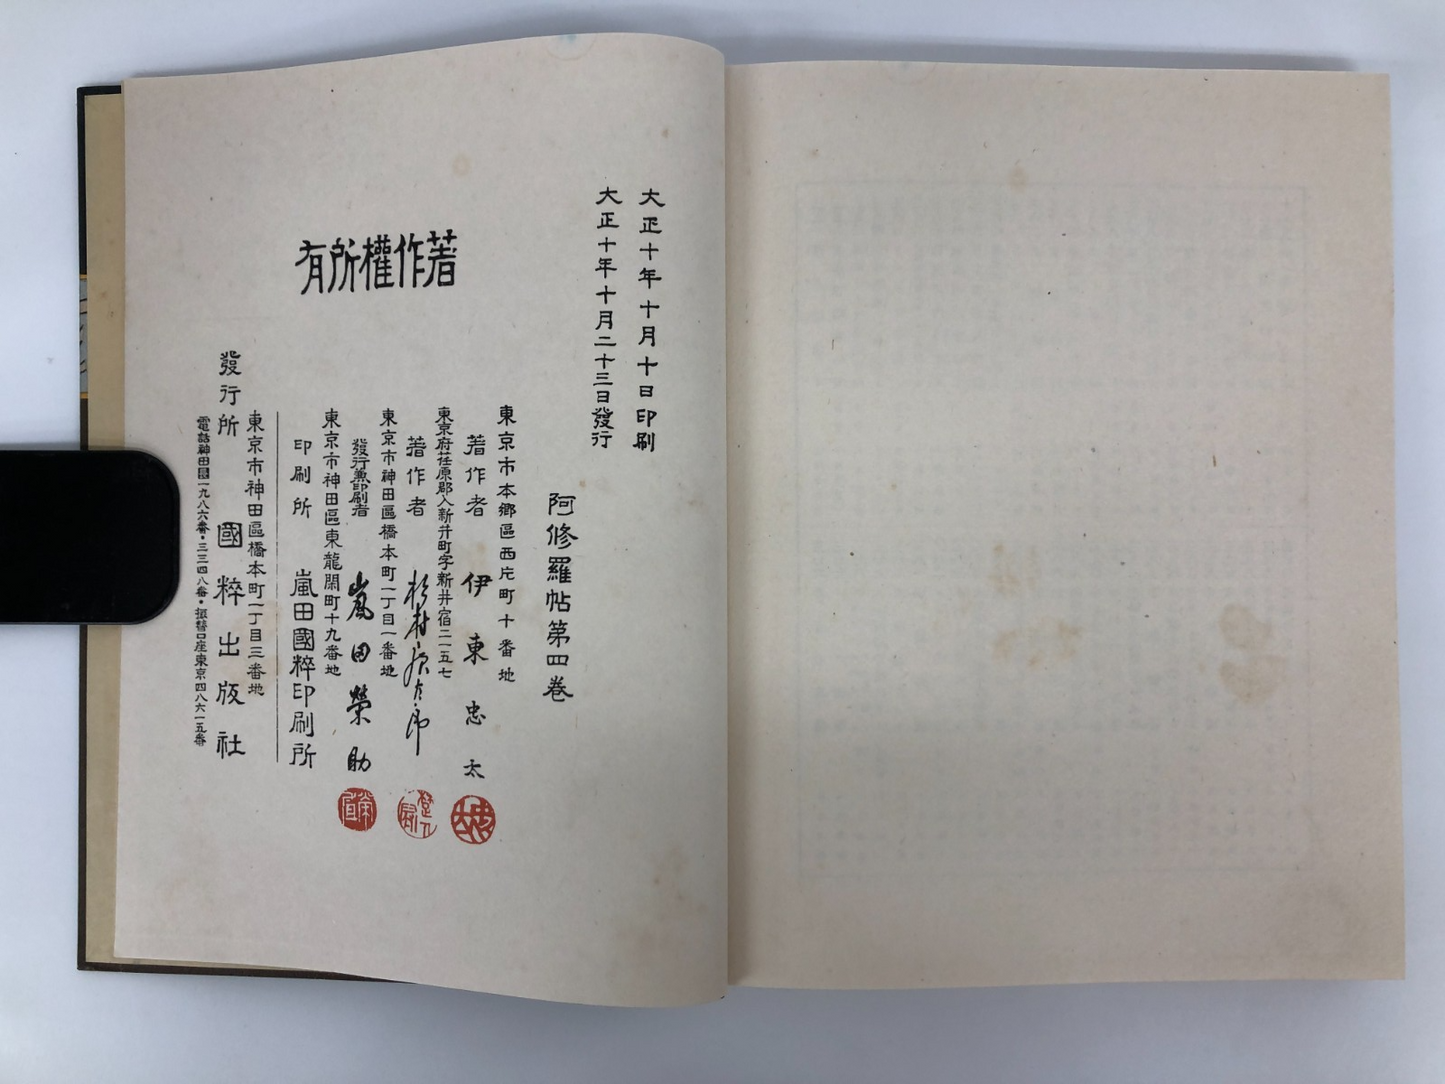 大正十年十月十日印刷
大正十年十月二十三日發行
阿修羅帖第四卷
東京市本郷區西片町十番地
著作者 伊東忠太
東京府荏原郡入新井町字新井宿二一五七
著作者 杉村廣太郎
東京市神田區橋本町一丁目一番地
發行兼印刷者 嵐田榮助
東京市神田區東龍閑町十九番地
印刷所 嵐田國粹印刷所
著作權所有
東京市神田區橋本町一丁目三番地
發行所 國粹出版社
電話神田國一九八六番・三三四八番・振替口座東京四八六一五番